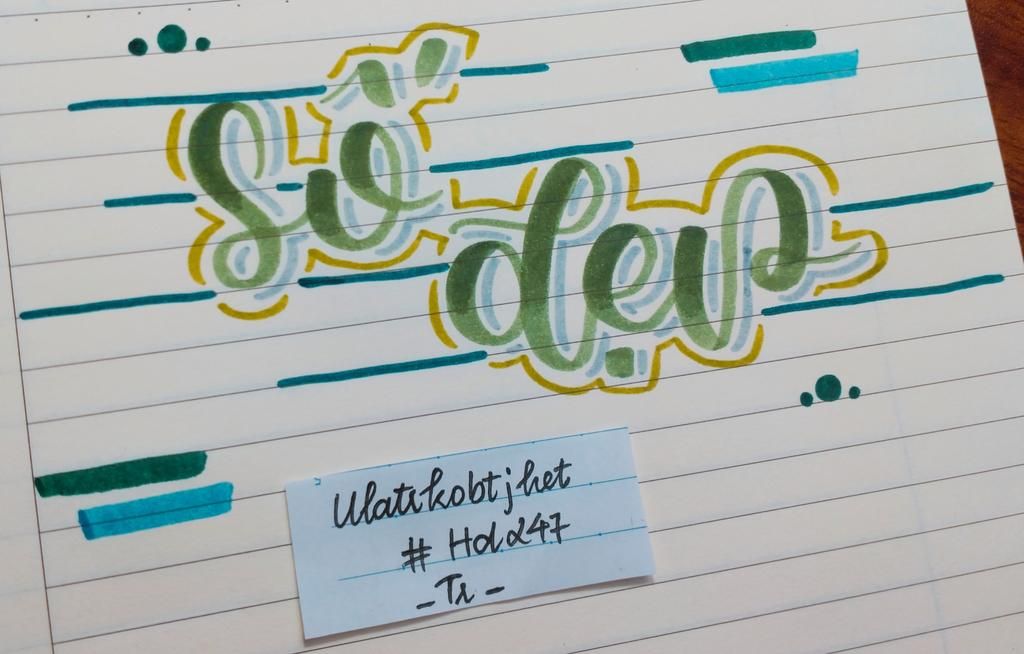 Số
đẹp
Ulatrkobtjhet
# Hdα247
-Tr-